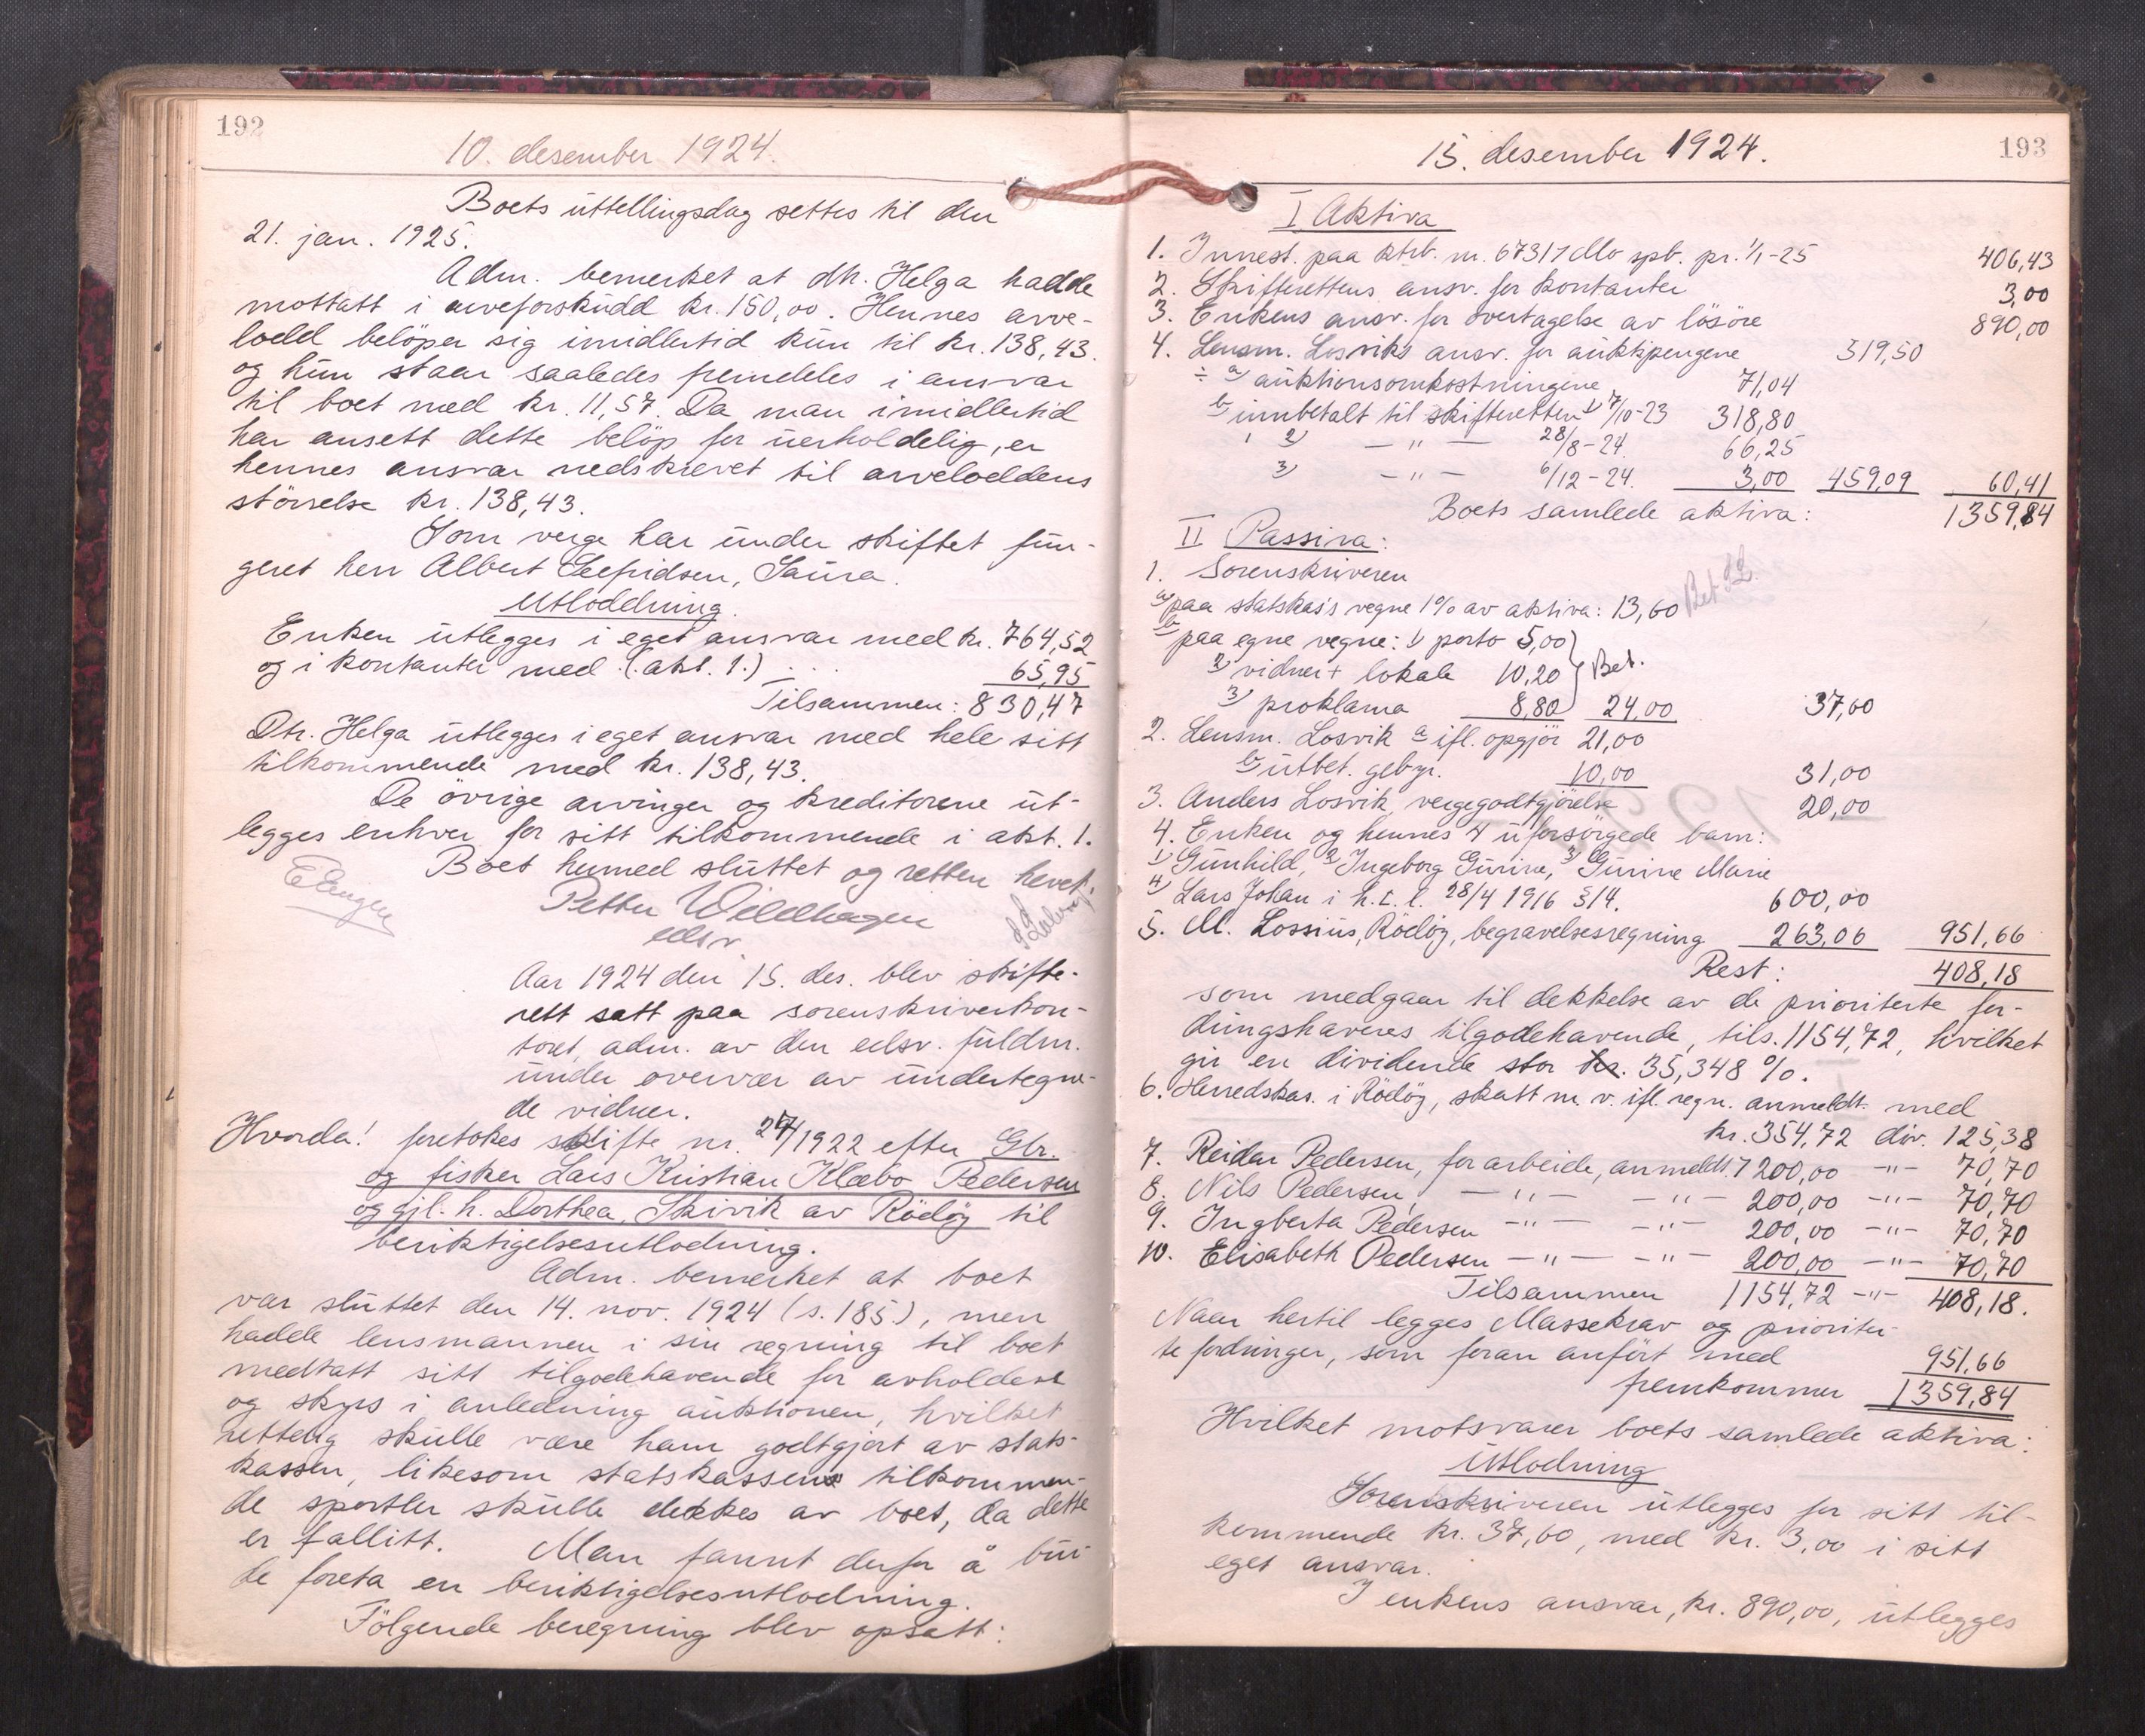 192
10. desember 1924.
Boets uttellingsdag settes til den
21. jan. 1925.
Adm. bemerket at dtr. Helga hadde
mottatt i arveforskudd kr. 150,00. Hennes arve-
lodd beløper sig imidlertid kun til kr. 138,43.
og hun staar saaledes fremdeles i ansvar
til boet med kr. 11,57. Da man imidlertid
har ansett dette beløp for uerholdelig, er
hennes ansvar nedskrevet til arveloddens
størrelse kr. 138,43.
Som verge har under skiftet fun-
geret herr Albert Seefridsen, Saura.
Utloddning.
Enken utlegges i eget ansvar med kr. 764,52
og i kontanter med (akt. 1.) . . . 65,95
Tilsammen: 830,47
Dtr. Helga utlegges i eget ansvar med hele sitt
tilkommende med kr. 138,43.
De øvrige arvinger og kreditorene ut-
legges enhver for sitt tilkommende i akt. 1.
Boet hermed sluttet og retten hevet.
Petter Wildhagen
edsv.
Aar 1924 den 15. des. blev skifte-
rett satt paa sorenskriverkon-
toret, adm. av den edsv. fuldm.
under overvær av undertegne-
de vidner.
Hvorda! foretokes skifte nr. 27/1922 efter Gbr.
og fisker Lars Kristian Klæbo Pedersen
og gjl. h. Dorthea, Skivik av Rödöy til
beriktigelsesutlodning.
Adm. bemerket at boet
var sluttet den 14. nov. 1924 (s. 185.), men
hadde lensmannen i sin regning til boet
medtatt sitt tilgodehavende for avholdelse
og skyss i anledning auktionen, hvilket
rettelig skulle være ham godtgjort av stats-
kassen, likesom statskassens tilkommen-
de sportler skulle dekkes av boet, da dette
er fallitt. Man fannt derfor å bur-
de foreta en beriktigelsesutlodning.
Følgende beregning blev opsatt:
193
15. desember 1924.
I Aktiva
1. Innest. paa ktrb. nr. 67317 Mo spb. pr. 1/1-25 406,43
2. Skifterettens ansv. for kontanter 3,00
3. Enkens ansv. for overtagelse av løsøre 890,00
4. Lensm. Losviks ansv. for auktspengene 319,50
÷ a) auktionsomkostningene 71,04
b) innbetalt til skifteretten 1) 7/10-23 318,80
2) — " — 28/8-24. 66,25
3) — " — 6/12-24. 3,00 459,09 60,41
Boets samlede aktiva: 1359,84
II Passiva:
1. Sorenskriveren
a) paa statskas's vegne 1% av aktiva: 13,60
b) paa egne vegne: 1) porto 5,00
2) vidner + lokale 10,20 Bet.
3) proklama 8,80 24,00 37,60
2. Lensm. Losvik a) ifl. opgjør 21,00
b) utbet. gebyr. 10,00 31,00
3. Anders Losvik, vergegodtgjørelse 20,00
4. Enken og hennes 4 uforsørgede barn:
1) Gunhild, 2) Ingeborg Gurine, 3) Gurine Marie
4) Lars Johan i h. t. l. 28/4 1916 §14. 600,00
5. M. Lossius, Rödöy, begravelsesregning 263,06 951,66
Rest: 408,18
som medgaar til dekkelse av de prioriterte for-
dringshaveres tilgodehavende, tils. 1154,72, hvilket
gir en dividende stor kr. 35,348 %.
6. Herredskas. i Rödöy, skatt m. v. ifl. regn. anmeldt med
kr. 354,72 div. 125,38
7. Reidar Pedersen, for arbeide, anmeldt 200,00 —"— 70,70
8. Nils Pedersen, —"— —"— 200,00 —"— 70,70
9. Ingberta Pedersen —"— —"— 200,00 —"— 70,70
10. Elisabeth Pedersen —"— —"— 200,00 —"— 70,70
Tilsammen 1154,72 —"— 408,18.
Naar hertil legges Massekrav og prioriter-
te fordringer, som foran anført med 951,66
fremkommer 1359,84
Hvilket motsvarer boets samlede aktiva:
Utlodning
Sorenskriveren utlegges for sitt til-
kommende kr. 37,60, med kr. 3,00 i sitt
eget ansvar.
I enkens ansvar, kr. 890,00, utlegges